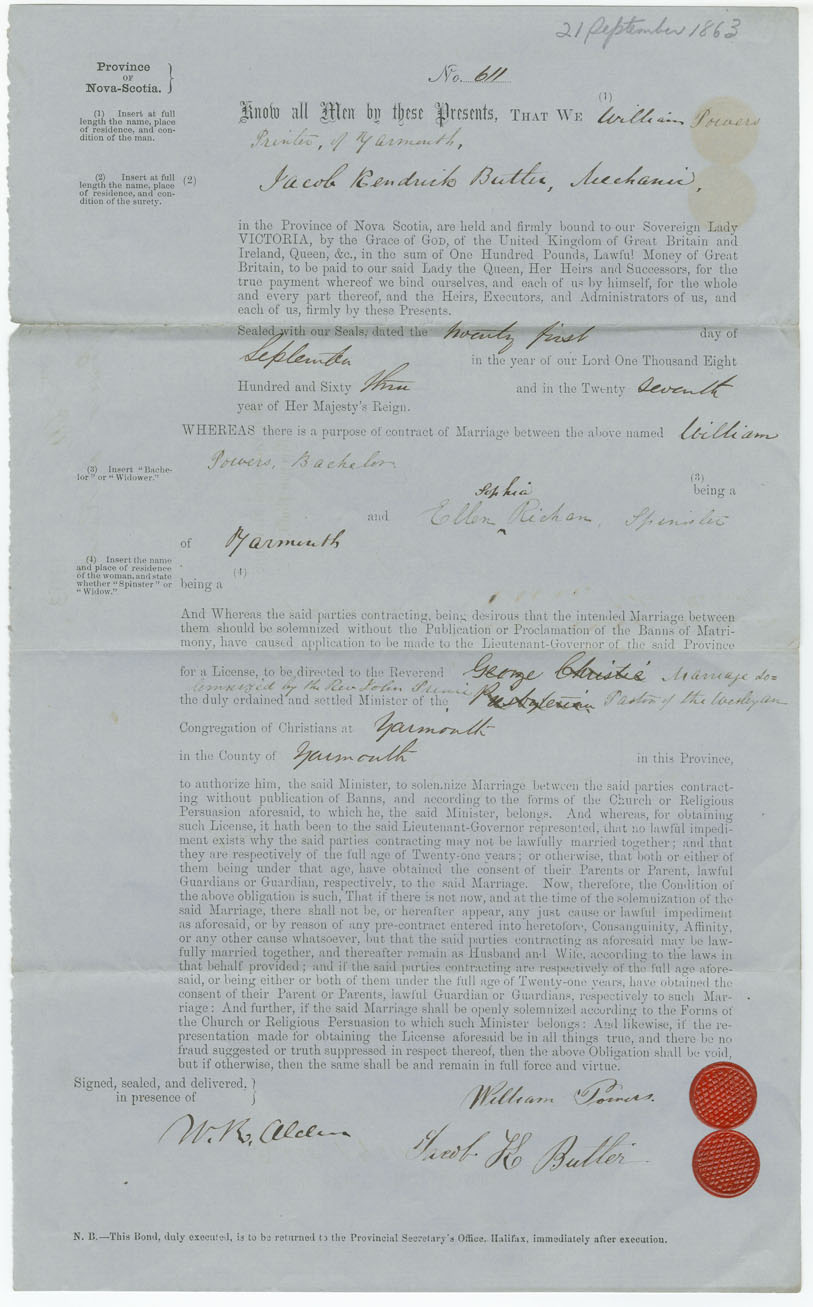 21 September 1863
Province
OF
Nova-Scotia.
No. 611
(1) Insert at full
length the name, place
of residence, and con-
dition of the man.
Know all Men by these Presents, THAT WE (1) William Powers
Printer, of Yarmouth,
(2) Insert at full
length the name, place
of residence, and con-
dition of the surety.
(2) Jacob Kendrick Butler, Mechanic,
in the Province of Nova Scotia, are held and firmly bound to our Sovereign Lady
VICTORIA, by the Grace of GOD, of the United Kingdom of Great Britain and
Ireland, Queen, &c., in the sum of One Hundred Pounds, Lawful Money of Great
Britain, to be paid to our said Lady the Queen, Her Heirs and Successors, for the
true payment whereof we bind ourselves, and each of us by himself, for the whole
and every part thereof, and the Heirs, Executors, and Administrators of us, and
each of us, firmly by these Presents.
Sealed with our Seals, dated the twenty first day of
September in the year of our Lord One Thousand Eight
Hundred and Sixty three and in the Twenty seventh
year of Her Majesty's Reign.
WHEREAS there is a purpose of contract of Marriage between the above named William
Powers, Bachelor
(3) Insert "Bache-
lor" or "Widower."
(3)
being a
Sophia
and Ellen ‸ Richan, Spinster
of Yarmouth
(4) Insert the name
and place of residence
of the woman, and state
whether "Spinster" or
"Widow."
(4)
being a
And Whereas the said parties contracting, being desirous that the intended Marriage between
them should be solemnized without the Publication or Proclamation of the Banns of Matri-
mony, have caused application to be made to the Lieutenant-Governor of the said Province
for a License, to be directed to the Reverend George Christie Marriage so=
lemnized by the Rev John Prince
the duly ordained and settled Minister of the Presbyterian Pastor of the Wesleyan
Congregation of Christians at Yarmouth
in the County of Yarmouth in this Province,
to authorize him, the said Minister, to solemnize Marriage between the said parties contract-
ing without publication of Banns, and according to the forms of the Church or Religious
Persuasion aforesaid, to which he, the said Minister, belongs. And whereas, for obtaining
such License, it hath been to the said Lieutenant-Governor represented, that no lawful impedi-
ment exists why the said parties contracting may not be lawfully married together; and that
they are respectively of the full age of Twenty-one years; or otherwise, that both or either of
them being under that age, have obtained the consent of their Parents or Parent, lawful
Guardians or Guardian, respectively, to the said Marriage. Now, therefore, the Condition of
the above obligation is such, That if there is not now, and at the time of the solemnization of the
said Marriage, there shall not be, or hereafter appear, any just cause or lawful impediment
as aforesaid, or by reason of any pre-contract entered into heretofore, Consanguinity, Affinity,
or any other cause whatsoever, but that the said parties contracting as aforesaid may be law-
fully married together, and thereafter remain as Husband and Wife, according to the laws in
that behalf provided; and if the said parties contracting are respectively of the full age afore-
said, or being either or both of them under the full age of Twenty-one years, have obtained the
consent of their Parent or Parents, lawful Guardian or Guardians, respectively to such Mar-
riage: And further, if the said Marriage shall be openly solemnized according to the Forms of
the Church or Religious Persuasion to which such Minister belongs: And likewise, if the re-
presentation made for obtaining the License aforesaid be in all things true, and there be no
fraud suggested or truth suppressed in respect thereof, then the above Obligation shall be void,
but if otherwise, then the same shall be and remain in full force and virtue.
Signed, sealed, and delivered,
in presence of
William Powers.
W. K. Alden
Jacob K Butler
N. B.—This Bond, duly executed, is to be returned to the Provincial Secretary's Office, Halifax, immediately after execution.